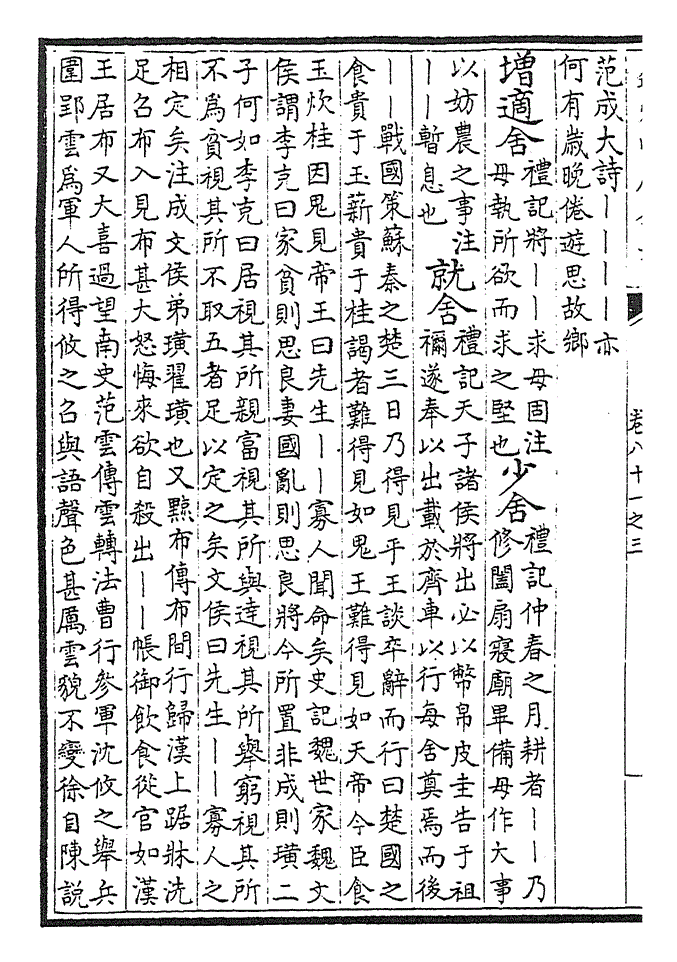 卷八十一之三
范成大詩丨丨丨丨亦
何有歲晚倦遊思故鄉
增適舍
禮記將丨丨求毋固注
毋執所欲而求之堅也
少舍
禮記仲春之月耕者丨丨乃
修闔扇寢廟畢備毋作大事
以妨農之事注
丨丨暫息也
就舍
禮記天子諸侯將出必以幣帛皮圭告于祖
禰遂奉以出載於齊車以行每舍奠焉而後
丨丨戰國策蘇秦之楚三日乃得見乎王談卒辭而行曰楚國之
食貴于玉薪貴于桂謁者難得見如鬼王難得見如天帝今臣食
玉炊桂因鬼見帝王曰先生丨丨寡人聞命矣史記魏世家魏文
侯謂李克曰家貧則思良妻國亂則思良將今所置非成則璜二
子何如李克曰居視其所親富視其所與達視其所舉窮視其所
不為貧視其所不取五者足以定之矣文侯曰先生丨丨寡人之
相定矣注成文侯弟璜翟璜也又黥布傳布間行歸漢上踞牀洗
足召布入見布甚大怒悔來欲自殺出丨丨帳御飲食從官如漢
王居布又大喜過望南史范雲傳雲轉法曹行參軍沈攸之舉兵
圍郢雲為軍人所得攸之召與語聲色甚厲雲貌不變徐自陳說